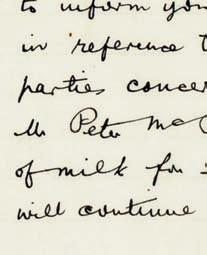 to inform you
in reference t
parties concer
Mr Peter Mc
of milk for
will continue